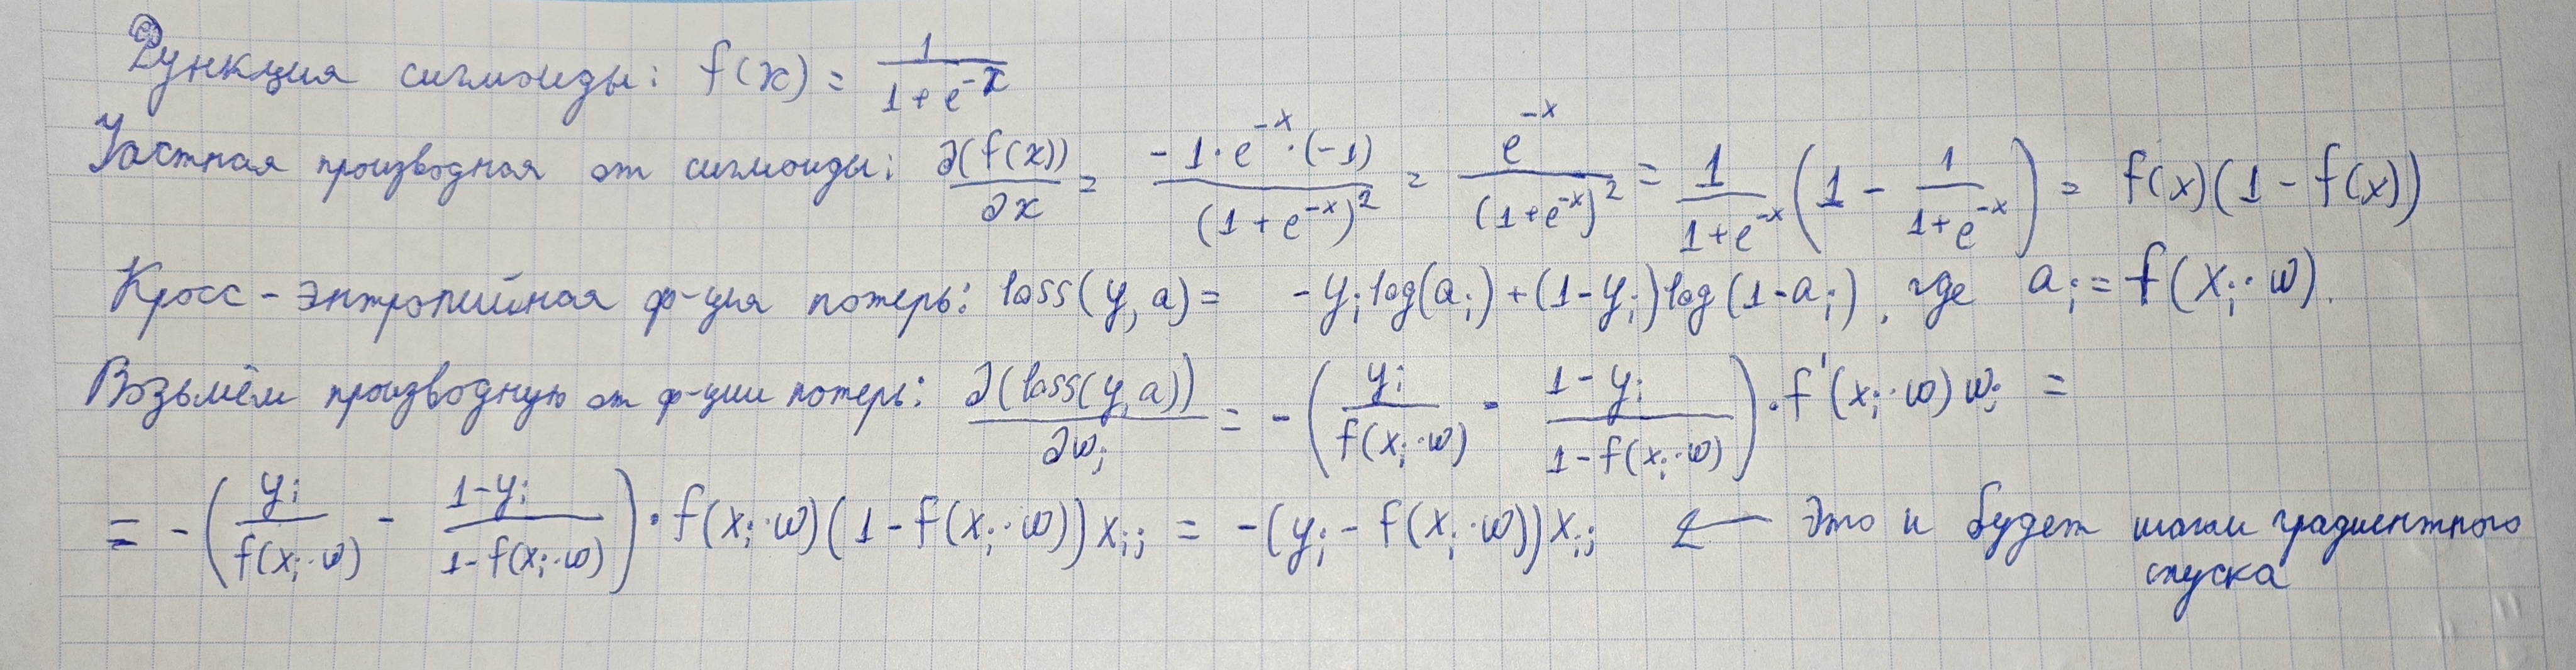 Функция сигмоиды: f(x) = 1/(1+e^{-x})
Частная производная от сигмоиды: ∂(f(x))/∂x = (-1·e^{-x}·(-1))/(1+e^{-x})^2 = e^{-x}/(1+e^{-x})^2 = 1/(1+e^{-x}) (1 - 1/(1+e^{-x})) = f(x)(1-f(x))
Кросс-энтропийная ф-ция потерь: loss(y,a) = -y_i log(a_i) + (1-y_i) log(1-a_i), где a_i = f(x_i·w).
Возьмём производную от ф-ции потерь: ∂(loss(y,a))/∂w_j = -(y_i/f(x_i·w) - (1-y_i)/(1-f(x_i·w)))·f'(x_i·w)w_j =
= -(y_i/f(x_i·w) - (1-y_i)/(1-f(x_i·w)))·f(x_i·w)(1-f(x_i·w))x_{ij} = -(y_i - f(x_i·w))x_{ij} ← Это и будет шагом градиентного
спуска